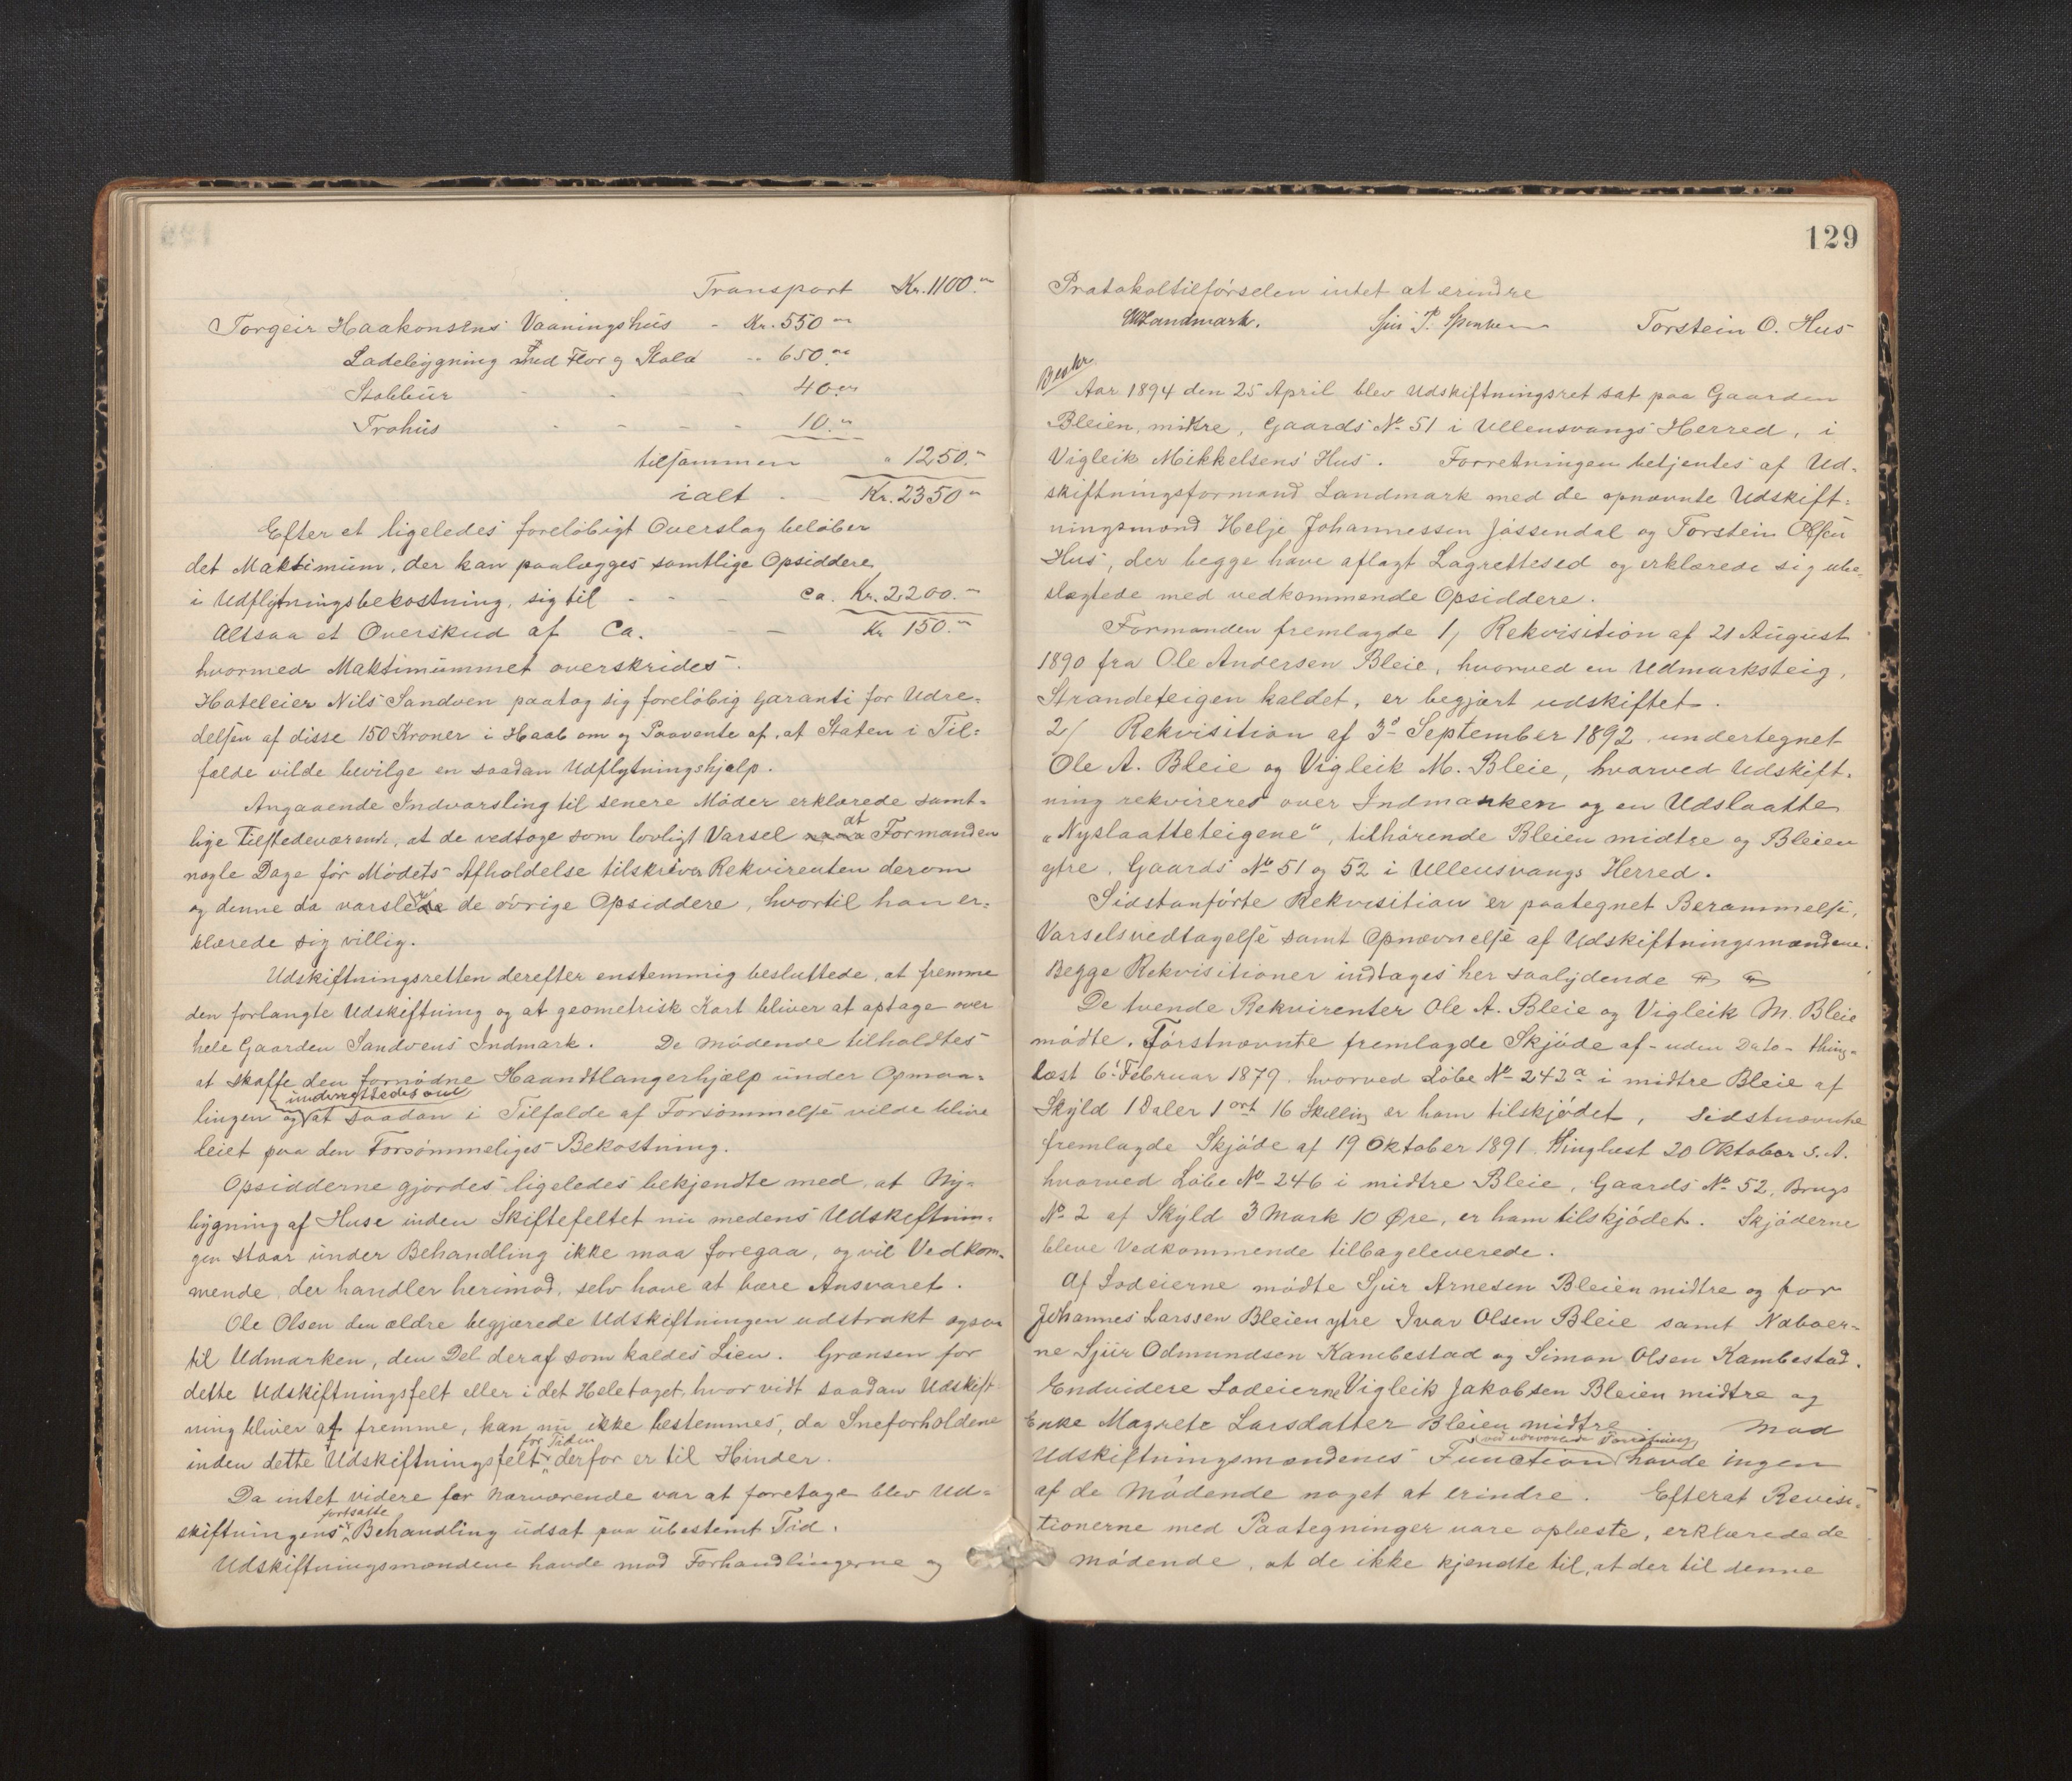 Transport Kr. 1100.
Torgeir Haakonsens Vaaningshus - Kr. 550
Ladebygning med Flor og Stald " 650.
Stabbur - - - 40
Trohus - - - - 10
tilsammen " 1250.
ialt - - Kr. 2350
Efter et ligeledes foreløbigt Overslag beløber
det Maksimum, der kan paalægges samtlige Opsiddere
i Udflytningsbekostning, sig til - - - ca. Kr. 2200.
Altsaa et Overskud af ca. - - Kr 150.
hvormed Maksimummet overskrides.
Hoteleier Nils Sandven paatog sig foreløbig Garanti for Udre-
delsen af disse 150 Kroner i Haab om og Paavente af, at Staten i Til-
fælde vilde bevilge en saadan Udflytningshjælp.
Angaaende Indvarsling til senere Møder erklærede samt-
lige Tilstedeværende, at de vedtoge som lovligt Varsel at Formanden
nogle Dage før Mødets Afholdelse tilskriver Rekvirenten derom
og denne da varsler de øvrige Opsiddere, hvortil han er-
klærede sig villig.
Udskiftningsretten derefter enstemmig besluttede, at fremme
den forlangte Udskiftning og at geometrisk Kart bliver at optage over
hele Gaarden Sandvens Indmark. De Mødende tilholdtes
at skaffe den fornødne Haandtlangerhjælp under Opmaa-
lingen og underrettedes om at saadan i Tilfælde af Forsømmelse vilde blive
leiet paa den Forsømmeliges Bekostning.
Opsidderne gjordes ligeledes bekjendte med, at Ny-
bygning af Huse inden Skiftefeltet nu medens Udskiftnin-
gen staar under Behandling ikke maa foregaa, og vil Vedkom-
mende, der handler herimod, selv have at bære Ansvaret.
Ole Olsen den ældre begjærede Udskiftningen udstrakt ogsaa
til Udmarken, den Del deraf som kaldes Lien. Grænsen for
dette Udskiftningsfelt eller i det Heletaget, hvorvidt saadan Udskift-
ning bliver at fremme, kan nu ikke bestemmes, da Sneforholdene
inden dette Udskiftningsfelt for Tiden derfor er til Hinder.
Da intet videre for nærværende var at foretage blev Ud-
skiftningens fortsatte Behandling udsat paa ubestemt Tid.
Udskiftningsmændene havde mod Forhandlingerne og
129
Protokoltilførselen intet at erindre
Landmark. Torstein O. Hus
Beskr
Aar 1894 den 25 April blev Udskiftningsret sat paa Gaarden
Bleien, mitre, Gaards No 51 i Ullensvangs Herred, i
Vigleik Mikkelsens Hus. Forretningen betjentes af Ud-
skiftningsformand Landmark med de opnævnte Udskift-
ningsmænd Helje Johannessen Jåssendal og Torstein Olsen
Hus, der begge have aflagt Lagrettesed og erklærede sig ube-
slægtede med vedkommende Opsiddere.
Formanden fremlagde 1/ Rekvisition af 21 August
1890 fra Ole Andersen Bleie, hvorved en Udmarksteig,
Strandeteigen kaldet, er begjært udskiftet.
2/ Rekvisition af 3d September 1892, undertegnet
Ole A. Bleie og Vigleik M. Bleie, hvorved Udskift-
ning rekvireres over Indmarken og en Udslaatte
"Nyslaatteteigene", tilhørende Bleien midtre og Bleien
ytre, Gaards No 51 og 52 i Ullensvangs Herred.
Sidstanførte Rekvisition er paategnet Berammelse,
Varselsvedtagelse samt Opnævnelse af Udskiftningsmændene.
Begge Rekvisitioner indtages her saalydende
De tvende Rekvirenter Ole A. Bleie og Vigleik M. Bleie
mødte. Førstnævnte fremlagde Skjøde af - uden Dato - thing-
læst 6 Februar 1879, hvorved Løbe No 242a i midtre Bleie af
Skyld 1 Daler 1 ort 16 Skilling er ham tilskjødet, Sidstnævnte
fremlagde Skjøde af 19 Oktober 1891, thinglæst 20 Oktober s. A.
hvorved Løbe No 246 i midtre Bleie, Gaards No 52, Brugs
No 2 af Skyld 3 Mark 10 Øre, er ham tilskjødet. Skjøderne
bleve Vedkommende tilbageleverede.
Af Lodeierne mødte Sjur Arnesen Bleien midtre og for
Johannes Larssen Bleien ytre Ivar Olsen Bleie samt Naboer-
ne Sjur Odmundsen Kambestad og Simon Olsen Kambestad.
Endvidere Lodeierne Vigleik Jakobsen Bleien midtre og
Enke Magrete Larsdatter Bleien midtre Mod
Udskiftningsmændenes Function ved nærværende Forretning havde ingen
af de Mødende noget at erindre. Efterat Revisi-
tionerne med Paategninger vare oplæste, erklærede de
Mødende, at de ikke kjendte til, at der til denne